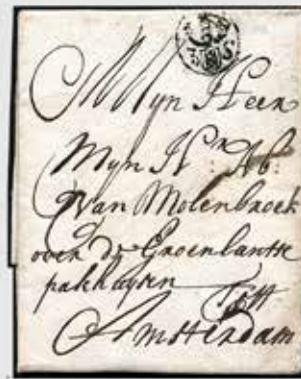 Mÿn Heer
Mÿn Hr. Ab:
Van Molenbroek
over de Groenlantse
pakhuÿsen
Tott
Amsterdam